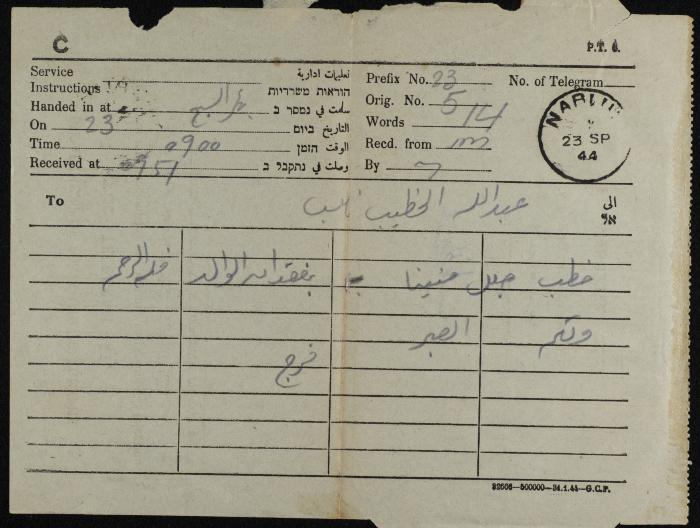 C
P.T. 6.
Service تعليمات ادارية
Instructions הוראות משרדיות
Handed in at بئر السبع سلمت في נמסר ב
On 23 التاريخ ביום
Time 0900 الوقت הזמן
Received at 0951 وصلت في נתקבל ב
Prefix No. 23 No. of Telegram
Orig. No. 5
Words 14
Recd. from
By
NABLUS
23 SP
44
To عبدالله الخطيب نابلس الى
אל
خطب جلل منينا بفقدان الوالد فله الرحمة
ولكم الصبر
فرج
32506—500000—24.1.44—G.C.P.